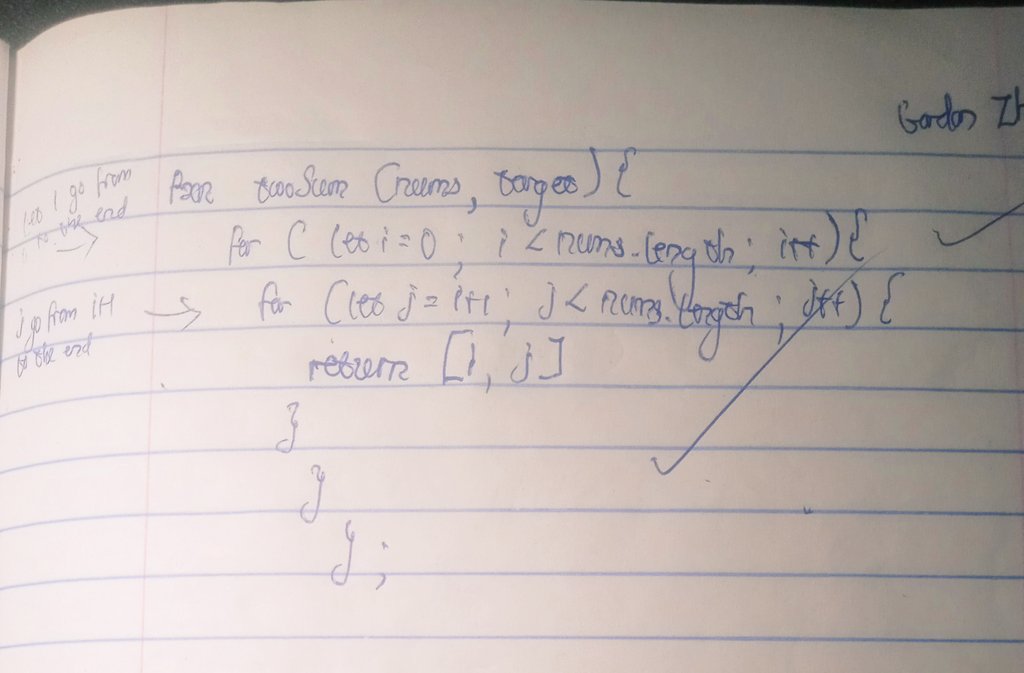 Gordon Zh
twoSum (nums, target) {
let i go from
to the end
for ( let i = 0 ; i < nums.length ; i++ ) {
for (let j = i+1 ; j < nums.length ; j++) {
j go from i+1
to the end
return [i, j]
}
}
} ;